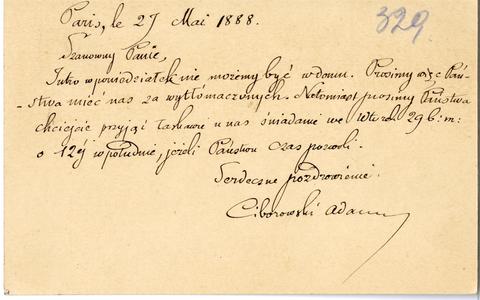 Paris, le 27 Mai 1888.
329.
Szanowny Panie,
Jutro w poniedziałek nie możemy być w domu. Prosimy więc Pań-
-stwa mieć nas za wytłómaczonych. Natomiast prosimy Państwa
chciejcie przyjąć łaskawie u nas śniadanie we Wtorek 29 b: m:
o 12éj w południe, jeżeli Państwu czas pozwoli.
Serdeczne pozdrowienie
Ciborowski Adam